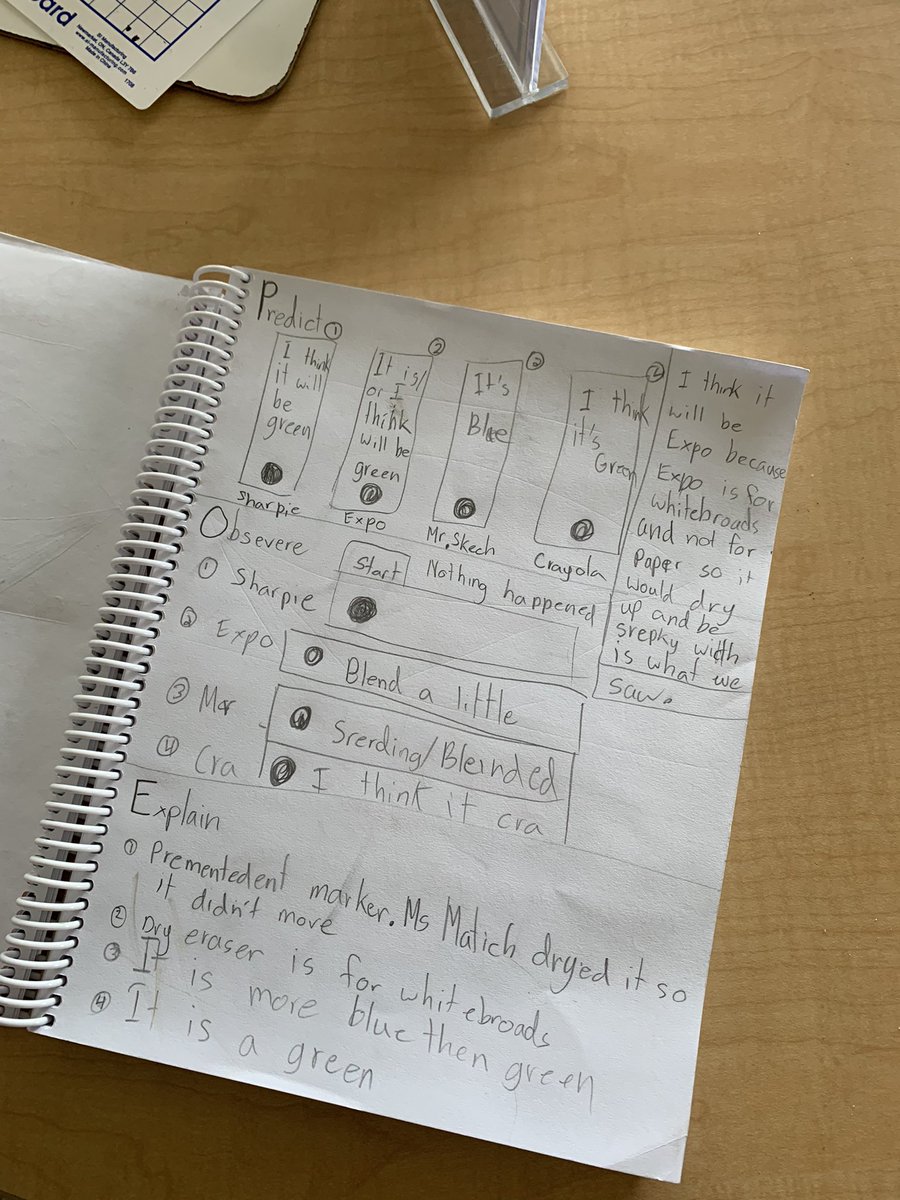 ard
SI Manufacturing
Newmarket, ON, Canada L3Y 7B6
www.si-manufacturing.com
Made in China
1708
Predict
① I think
it will
be
green
Sharpie
② It is/
or I
think
will be
green
Expo
③ It's
Blue
Mr.Skech
I think
it's
Green
Crayola
I think it
will be
Expo because
Expo is for
whitebroads
and not for
Paper so it
would dry
up and be
srepky width
is what we
saw.
Obsevere
Start Nothing happened
① Sharpie
② Expo Blend a little
③ Mar Srerding/Bleinded
④ Cra I think it cra
Explain
① Prementedent marker. Ms Matich dryed it so
it didn't move
② Dry eraser is for whitebroads
③ It is more blue then green
④ It is a green